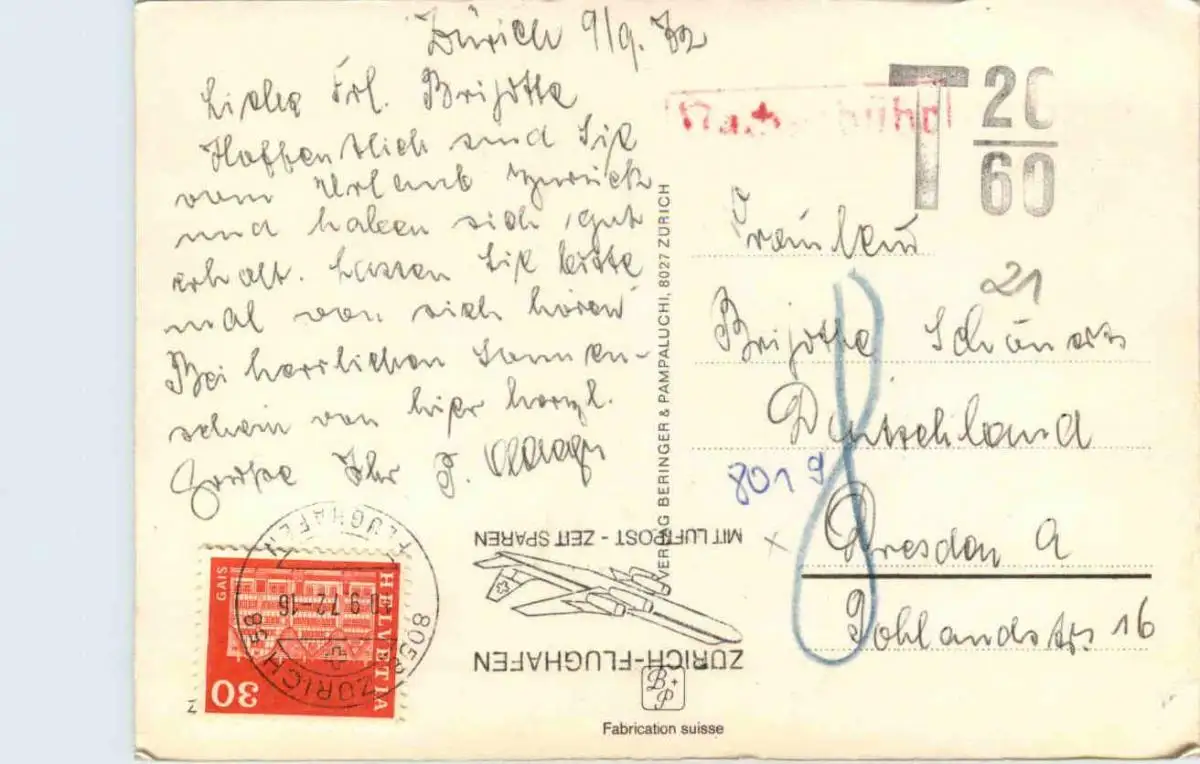 Zürich 9/9. 72
Liebe Frl. Brigitte
Hoffentlich sind Sie
vom Urlaub zurück
und haben sich gut
erholt. Lassen Sie bitte
mal von sich hören
Bei herrlichen Sonnen-
schein von hier herzl.
Grüße Ihr
Nachgebühr
T 20
60
Fräulein
21
Brigitte
Deutschland
8019
Dresden A
Pohlandstr. 16
VERLAG BERINGER & PAMPALUCHI, 8027 ZÜRICH
MIT LUFTPOST - ZEIT SPAREN
ZÜRICH-FLUGHAFEN
GAIS
HELVETIA
30
8058 ZÜRICH 58
FLUGHAFEN
9.72-16
B+P
Fabrication suisse